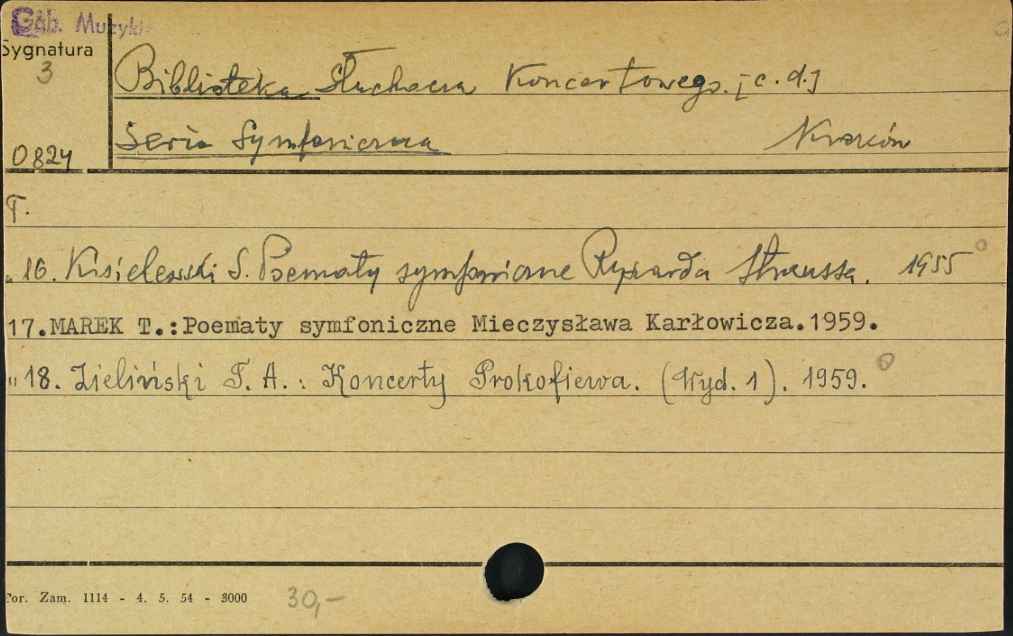 Gab. Muzyki
Sygnatura
3
Biblioteka Słuchacza Koncertowego. [c.d.]
Seria Symfoniczna Kraków
0824
T.
„ 16. Kisielewski S. Poematy symfoniczne Ryszarda Straussa. 1955
17.MAREK T.:Poematy symfoniczne Mieczysława Karłowicza.1959.
" 18. Zieliński T. A.: Koncerty Prokofiewa. (Wyd. 1). 1959.
Por. Zam. 1114 - 4. 5. 54 - 3000 30,-